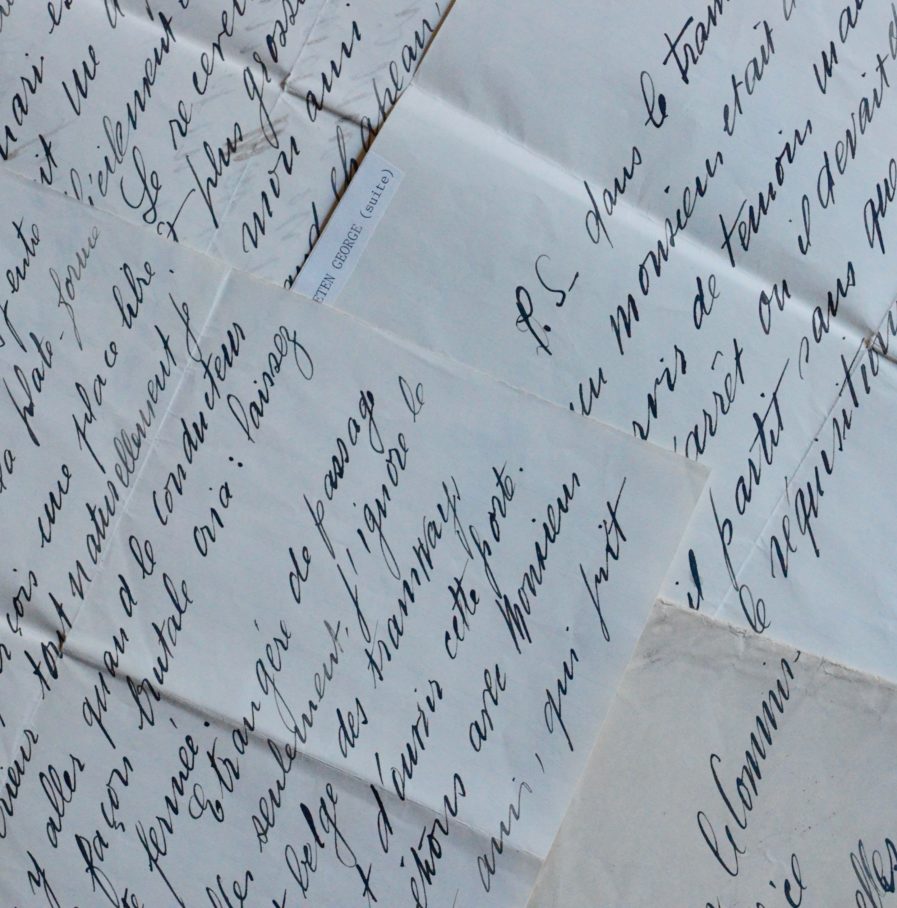 mari e
it une
facilement
Le recev
+ plus gross
mon ami
and chapeau,
ETEN GEORGE (suite)
P.S. dans le tram
un monsieur etait
de temoin mai
arrêt ou il devait d
il partit sans que
le réquisition
t entre
la plate-forme
çois une place libre.
rieur tout naturellement je
y aller quand le conducteur
façon brutale cria: laissez
fermée.
Etrangéré de passage
lles seulement, j'ignore le
t belge des tramways
t d'ouvrir cette porte.
étions avec Monsieur
ami, qui fuit
le Commis
ice
elles